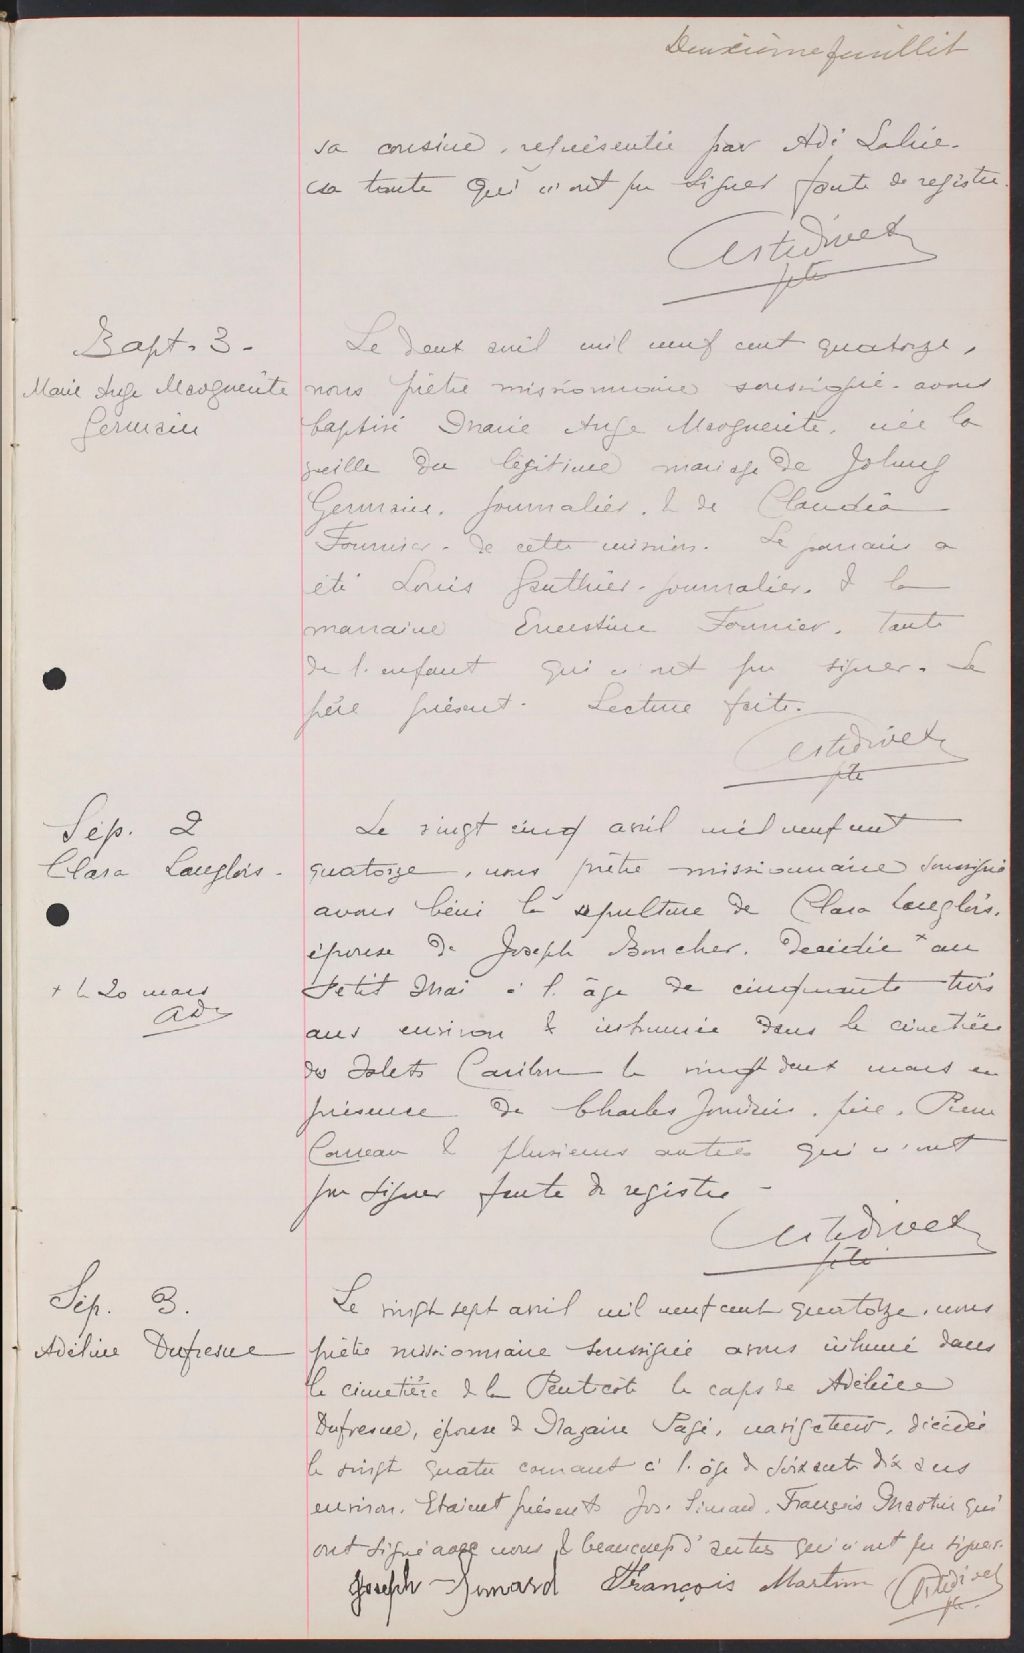 Deuxième feuillet
sa cousine, représentée par Adé
sa tante qui n'ont pu signer faute de registre.
Arthdivet
ptre
Bapt. 3.
Marie Ange Marguerite
Germain
Le deux avril mil neuf cent quatorze,
nous prêtre missionnaire soussigné avons
baptisé Marie Ange Marguerite, née la
veille du légitime mariage de Johny
Germain, journalier, & de Claudia
Fournier, de cette mission. Le parrain a
été Louis Gauthier, journalier, & la
marraine Ernestine Fournier, tante
de l'enfant qui n'ont pu signer. Le
père présent. Lecture faite.
ptre
Sép. 2
Clara Langlois.
+ le 20 mars
AD
Le vingt cinq avril mil neuf cent
quatorze, nous prêtre missionnaire soussigné
avons béni la sépulture de Clara Langlois,
épouse de Joseph Boucher, décédée + au
Petit Mai à l'âge de cinquante trois
ans environ & inhumée dans le cimetière
des Ilets Caribou le vingt deux mars en
présence de Charles Jourdain, père, Pierre
Comeau & plusieurs autres qui n'ont
pu signer faute de registre -
ptre
Sép. 3.
Adéline Dufresne
Le vingt sept avril mil neuf cent quatorze, nous
prêtre missionnaire soussigné avons inhumé dans
le cimetière de la Pentecôte le corps de Adéline
Dufresne, épouse de Nazaire Pagé, navigateur, décédée
le vingt quatre courant à l'âge de soixante dix ans
environ. Etaient présents Jos. Simard, François Martin qui
ont signé avec nous & beaucoup d'autres qui n'ont pu signer.
Joseph Simard François Martin